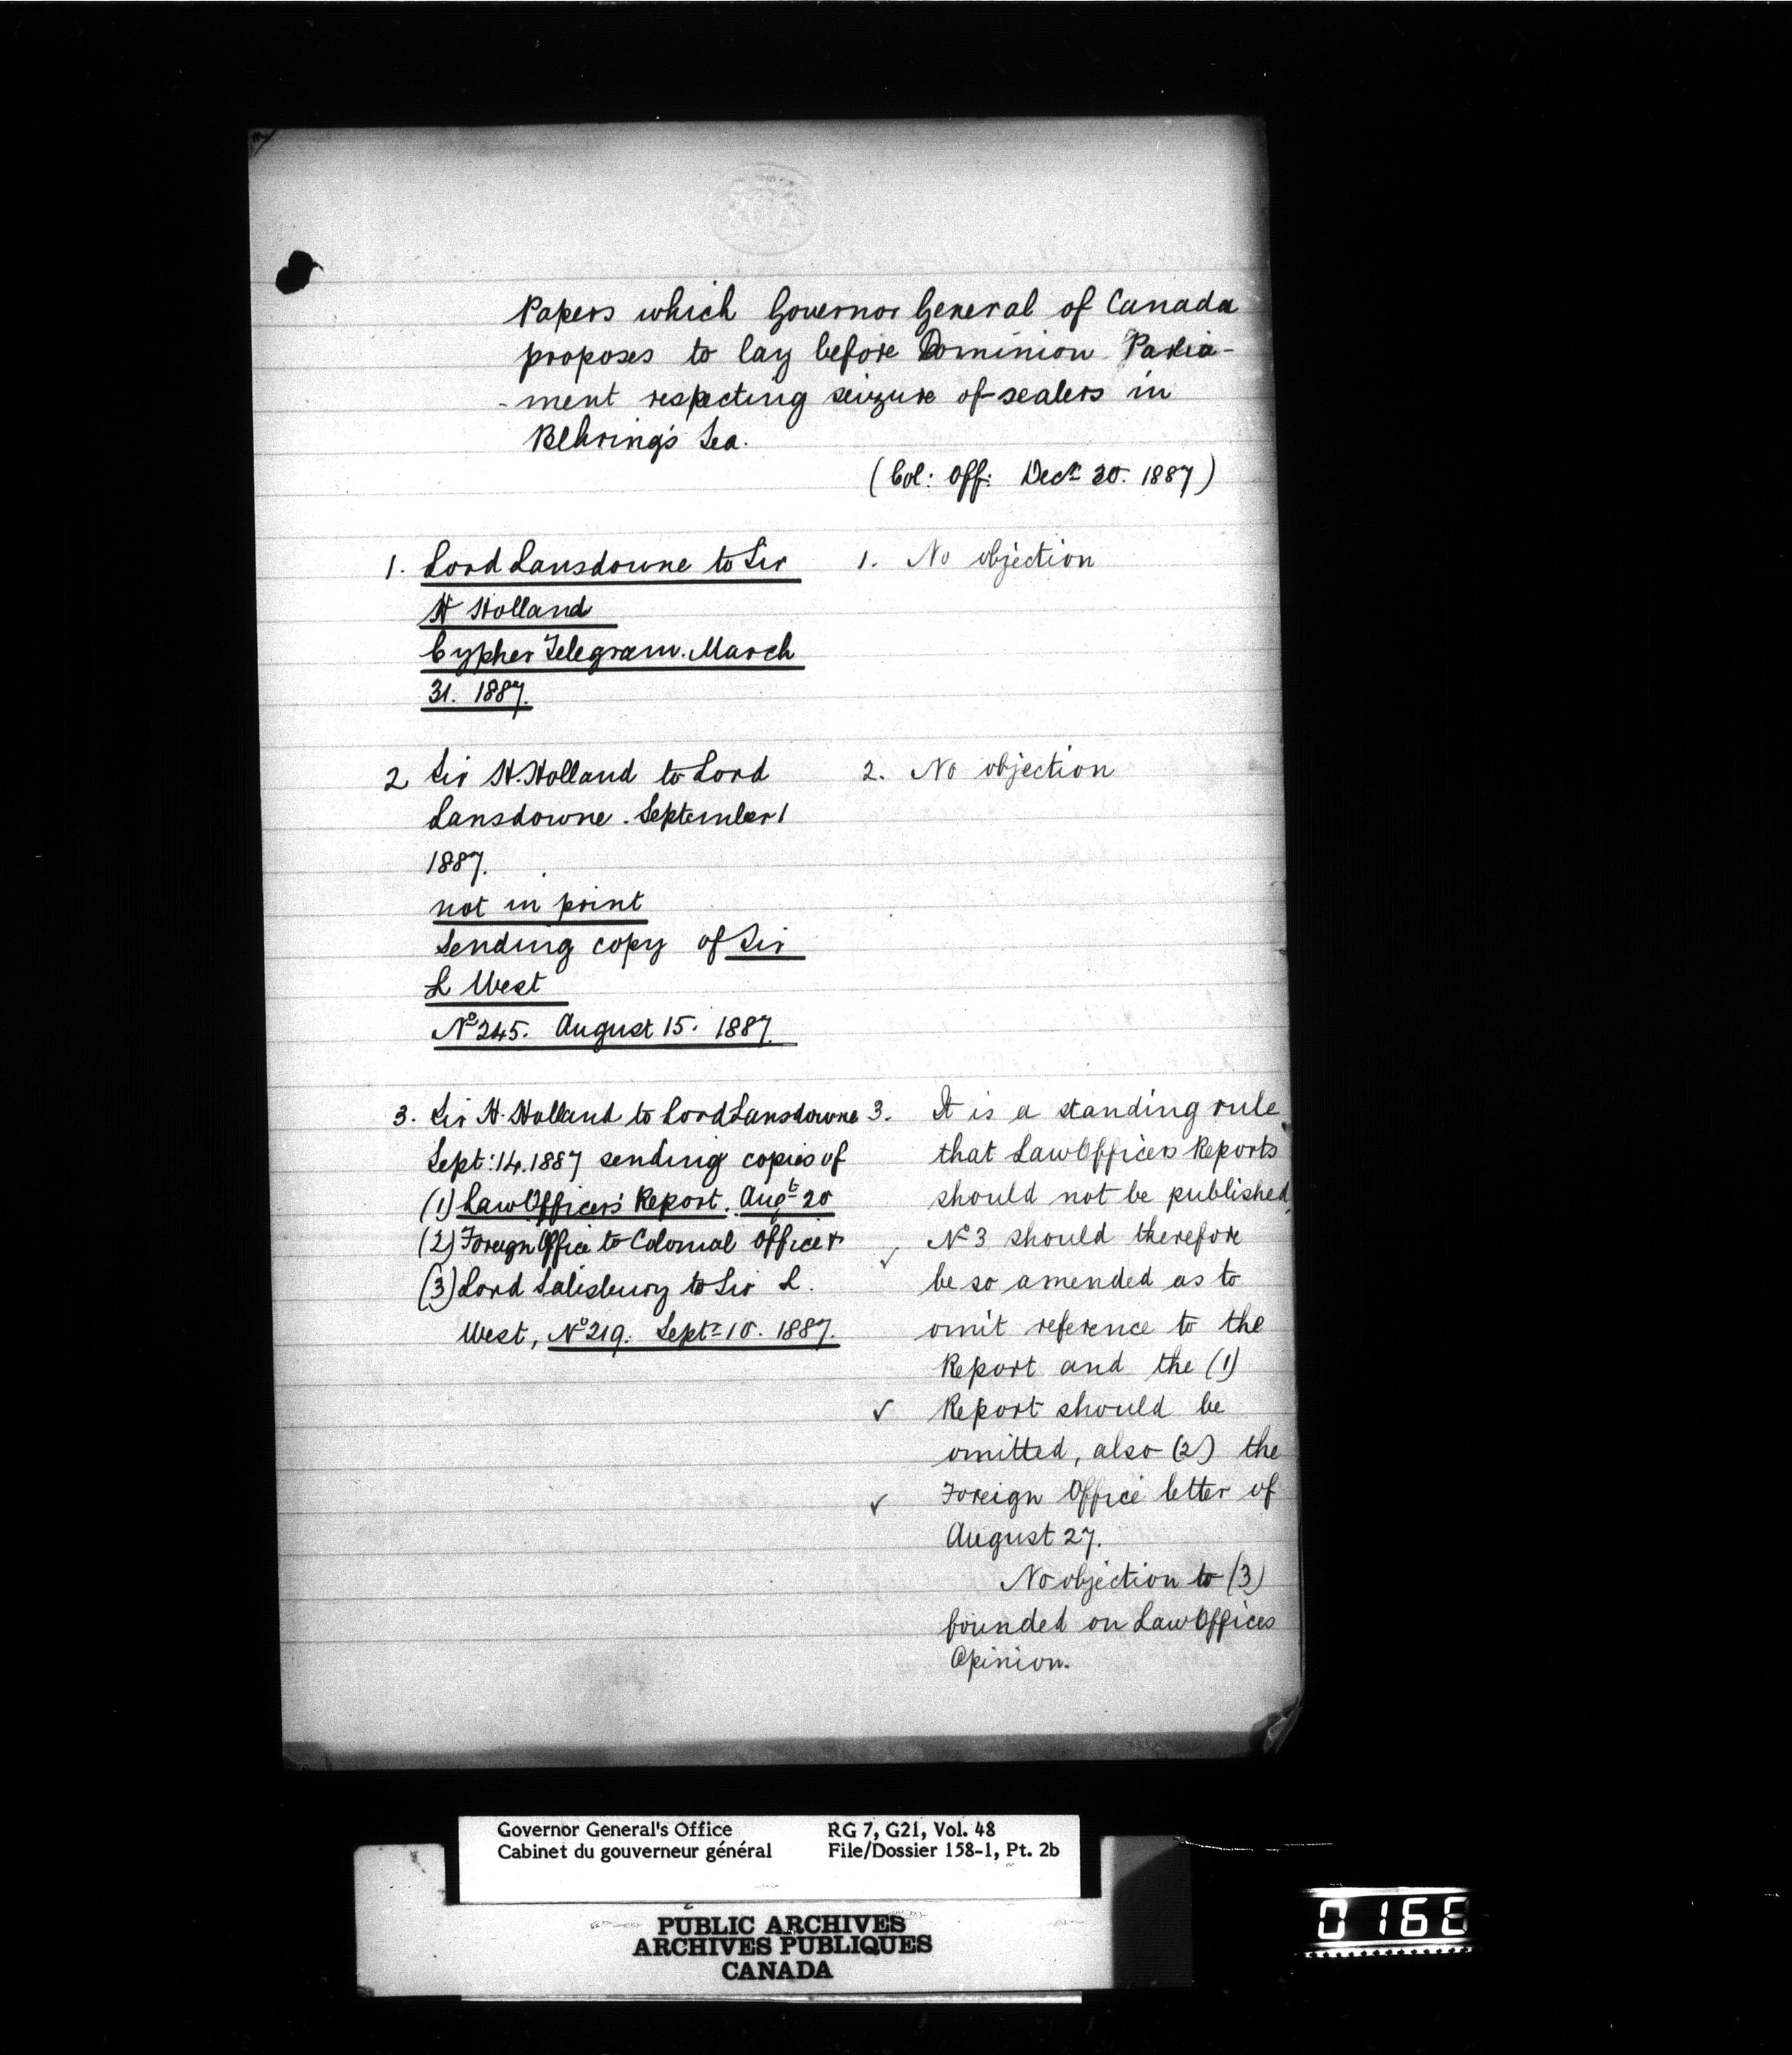 Papers which Governor General of Canada
proposes to lay before Dominion Parlia-
-ment respecting seizure of sealers in
Behring's Sea.
(Col: Off: Decr 30. 1887)
1. Lord Lansdowne to Sir
H Holland
Cypher Telegram. March
31. 1887.
1. No objection
2 Sir H. Holland to Lord
Lansdowne. September 1
1887.
not in print
Sending copy of Sir
L West
No 245. August 15. 1887.
2. No objection
3. Sir H. Holland to Lord Lansdowne
Sept: 14. 1887 sending copies of
(1) Law Officers' Report. Augt 20
(2) Foreign Office to Colonial Office &
(3) Lord Salisbury to Sir L.
West, No 219. Sept 10. 1887.
3. It is a standing rule
that Law Officers Reports
should not be published
No 3 should therefore
be so amended as to
omit reference to the
Report and the (1)
Report should be
omitted, also (2) the
Foreign Office letter of
August 27.
No objection to (3)
founded on Law Offices
Opinion.
Governor General's Office
Cabinet du gouverneur général
RG 7, G21, Vol. 48
File/Dossier 158-1, Pt. 2b
PUBLIC ARCHIVES
ARCHIVES PUBLIQUES
CANADA